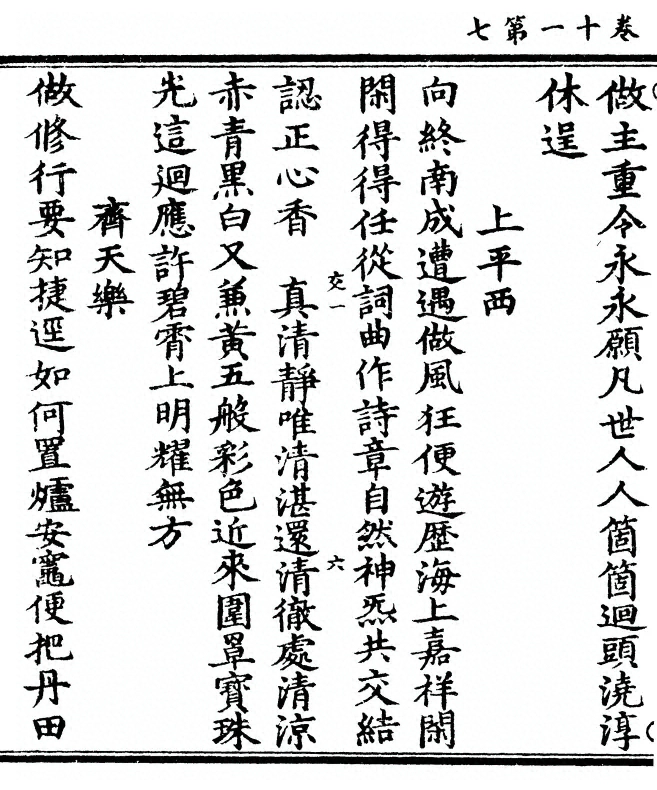 卷十一第七
做主重令永永願凡世人人箇箇迴頭澆淳
休逞
上平西
向終南成遭遇做風狂便遊歷海上嘉祥閑
閑得得任從詞曲作詩章自然神炁共交結
認正心香　真清靜唯清湛還清徹處清涼
交一
六
赤青黑白又兼黃五般彩色近來圍罩寶珠
先這迴應許碧霄上明耀無方
齊天樂
做修行要知捷逕如何置爐安竈便把丹田